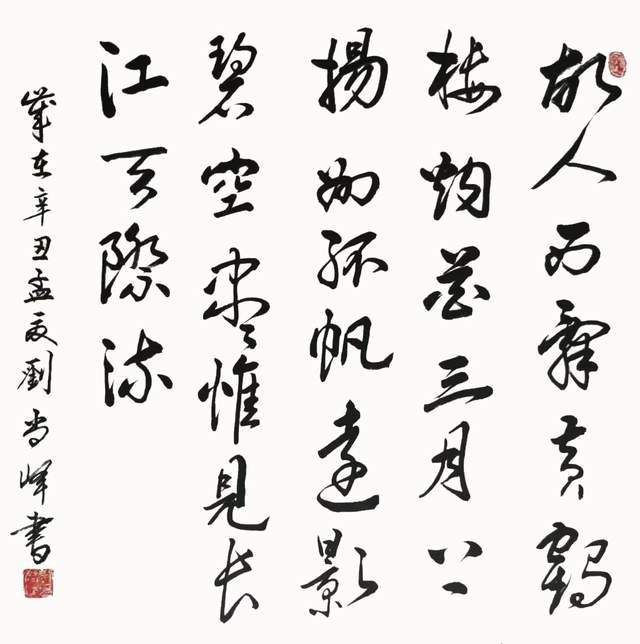 故人西辭黃鶴
樓烟花三月下
揚州孤帆遠影
碧空盡惟見長
江天際流
歲在辛丑孟夏劉尚峰書